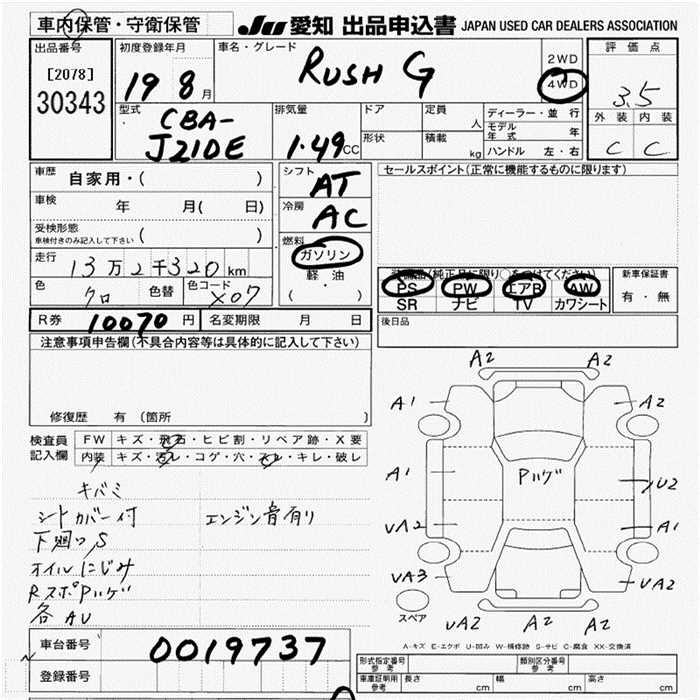 車内保管・守衛保管
JU 愛知 出品申込書 JAPAN USED CAR DEALERS ASSOCIATION
出品番号
[2078]
30343
初度登録年月
19 8月
車名・グレード
RUSH G
2WD
4WD
評価点
3.5
外装 内装
C C
型式
CBA-
J210E
排気量
1.49CC
ドア
形状
定員
人
積載
kg
ディーラー・並行
モデル年式
年
ハンドル 左・右
車歴
自家用・( )
車検
年 月( 日)
受検形態
車検付きのみ記入して下さい
( )
走行
13万2千320km
色
クロ
色替
色コード
X07
シフト
AT
冷房
AC
燃料
ガソリン
軽油
( ・ )
セールスポイント(正常に機能するものに限ります)
装備品(純正品に限り○をつけてください)
PS PW エアB AW
SR ナビ TV カワシート
新車保証書
有・無
後日品
R券 10070円
名変期限 月 日
注意事項申告欄(不具合内容等は具体的に記入して下さい)
修復歴 有(箇所 )
検査員記入欄
FW キズ・飛石・ヒビ割・リペア跡・X要
内装 キズ・汚レ・コゲ・穴・スレ・キレ・破レ
キバミ
シートカバー付
エンジン音有り
下廻り S
オイルにじみ
RスポPハゲ
各AU
A2 A2
A1 A2
A1
Pハゲ
U2
UA2 A1
UA3 UA2
スペア
UA2 A2 A2
A-キズ E-エクボ U-凹み W-補修跡 S-サビ C-腐食 XX-交換済
車台番号
0019737
登録番号
型式指定番号
参考
類別区分番号
参考
車庫証明用
参考
長さ cm 幅 cm 高さ cm